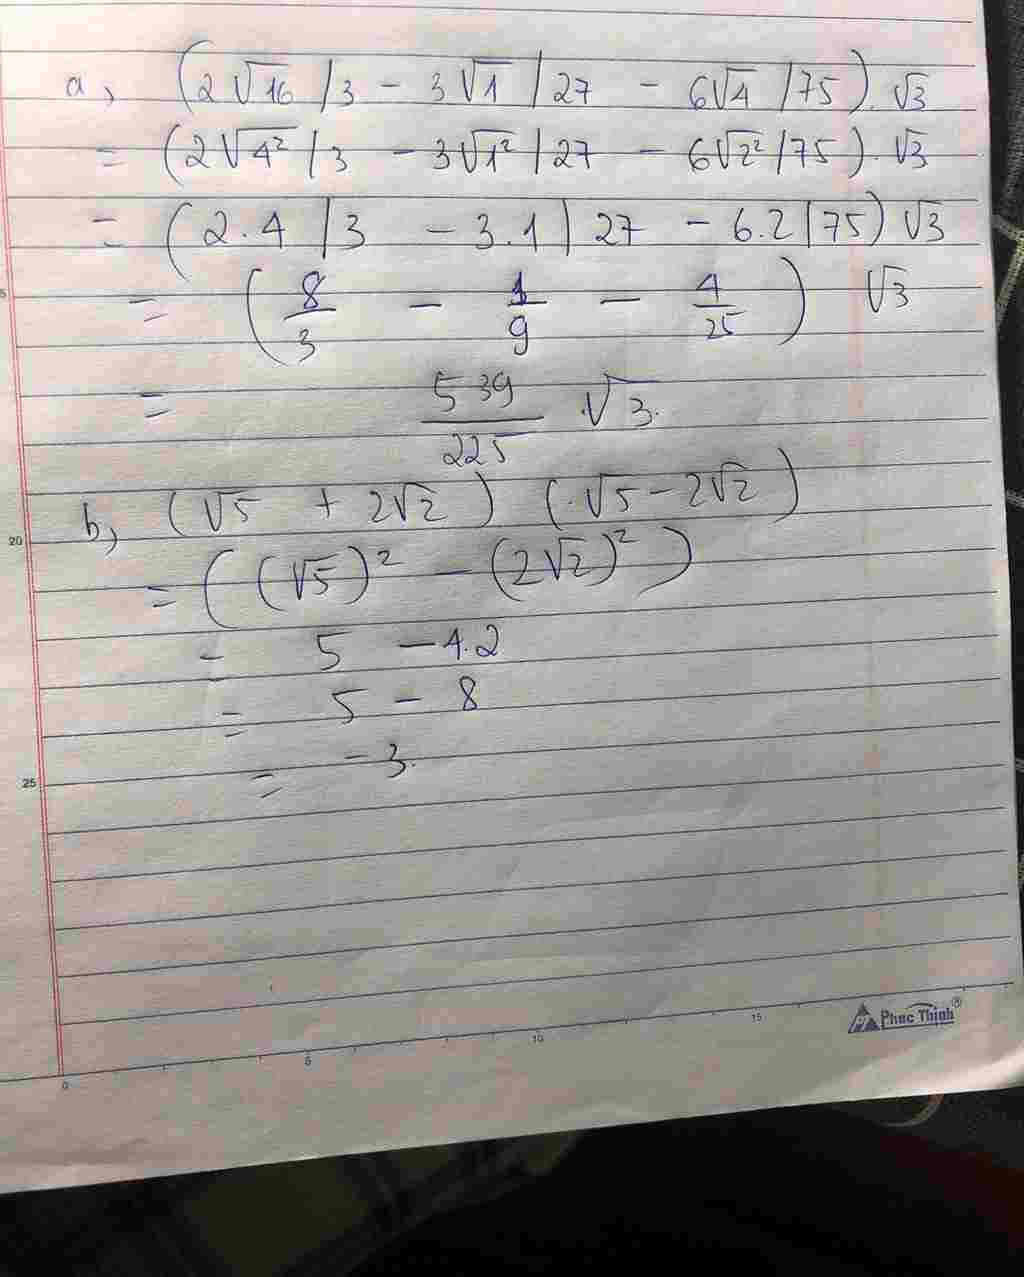 a, (2√16 /3 - 3√1 /27 - 6√4 /75). √3
= (2√4² /3 - 3√1² /27 - 6√2² /75). √3
= (2.4 /3 - 3.1 /27 - 6.2 /75) √3
= (8/3 - 1/9 - 4/25) √3
= 539/225 .√3.
b, (√5 + 2√2) (.√5 - 2√2)
= ((√5)² - (2√2)²)
= 5 - 4.2
= 5 - 8
= -3.
20
25
0 5 10 15
Phuc Thinh®